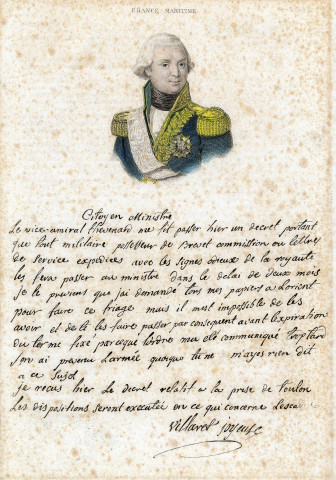 FRANCE MARITIME
Citoyen Ministre
Le vice-amiral thevenard me fit passer hier un decret portant
que tout militaire possesseur de Brevet commission ou lettres
de service expediées avec les signes odieux de la royauté
les fera passer au ministre dans le delai de deux mois
je te previens que jai demandé tous mes papiers a Lorient
pour faire ce triage mais il m'est impossible de les
avoir et de té les faire passer par consequent avant l'expiration
du terme fixé parceque lordre ma eté communiqué trop tard
jen ai prevenu Larmée quoique tu ne mayes rien dit
a ce sujet
je reçus hier Le decret relatif a la prise de toulon
Les dispositions seront executée en ce qui concerne Lescadre
Villaret joyeuse